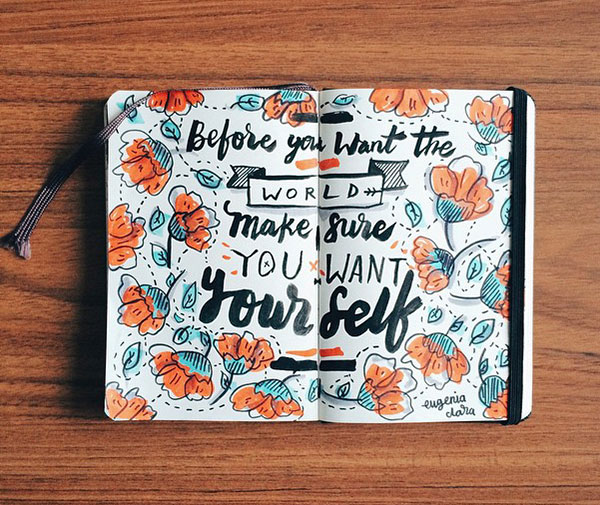 Before you Want the
WORLD
Make sure
YOU WANT
Yourself
eugenia
clara